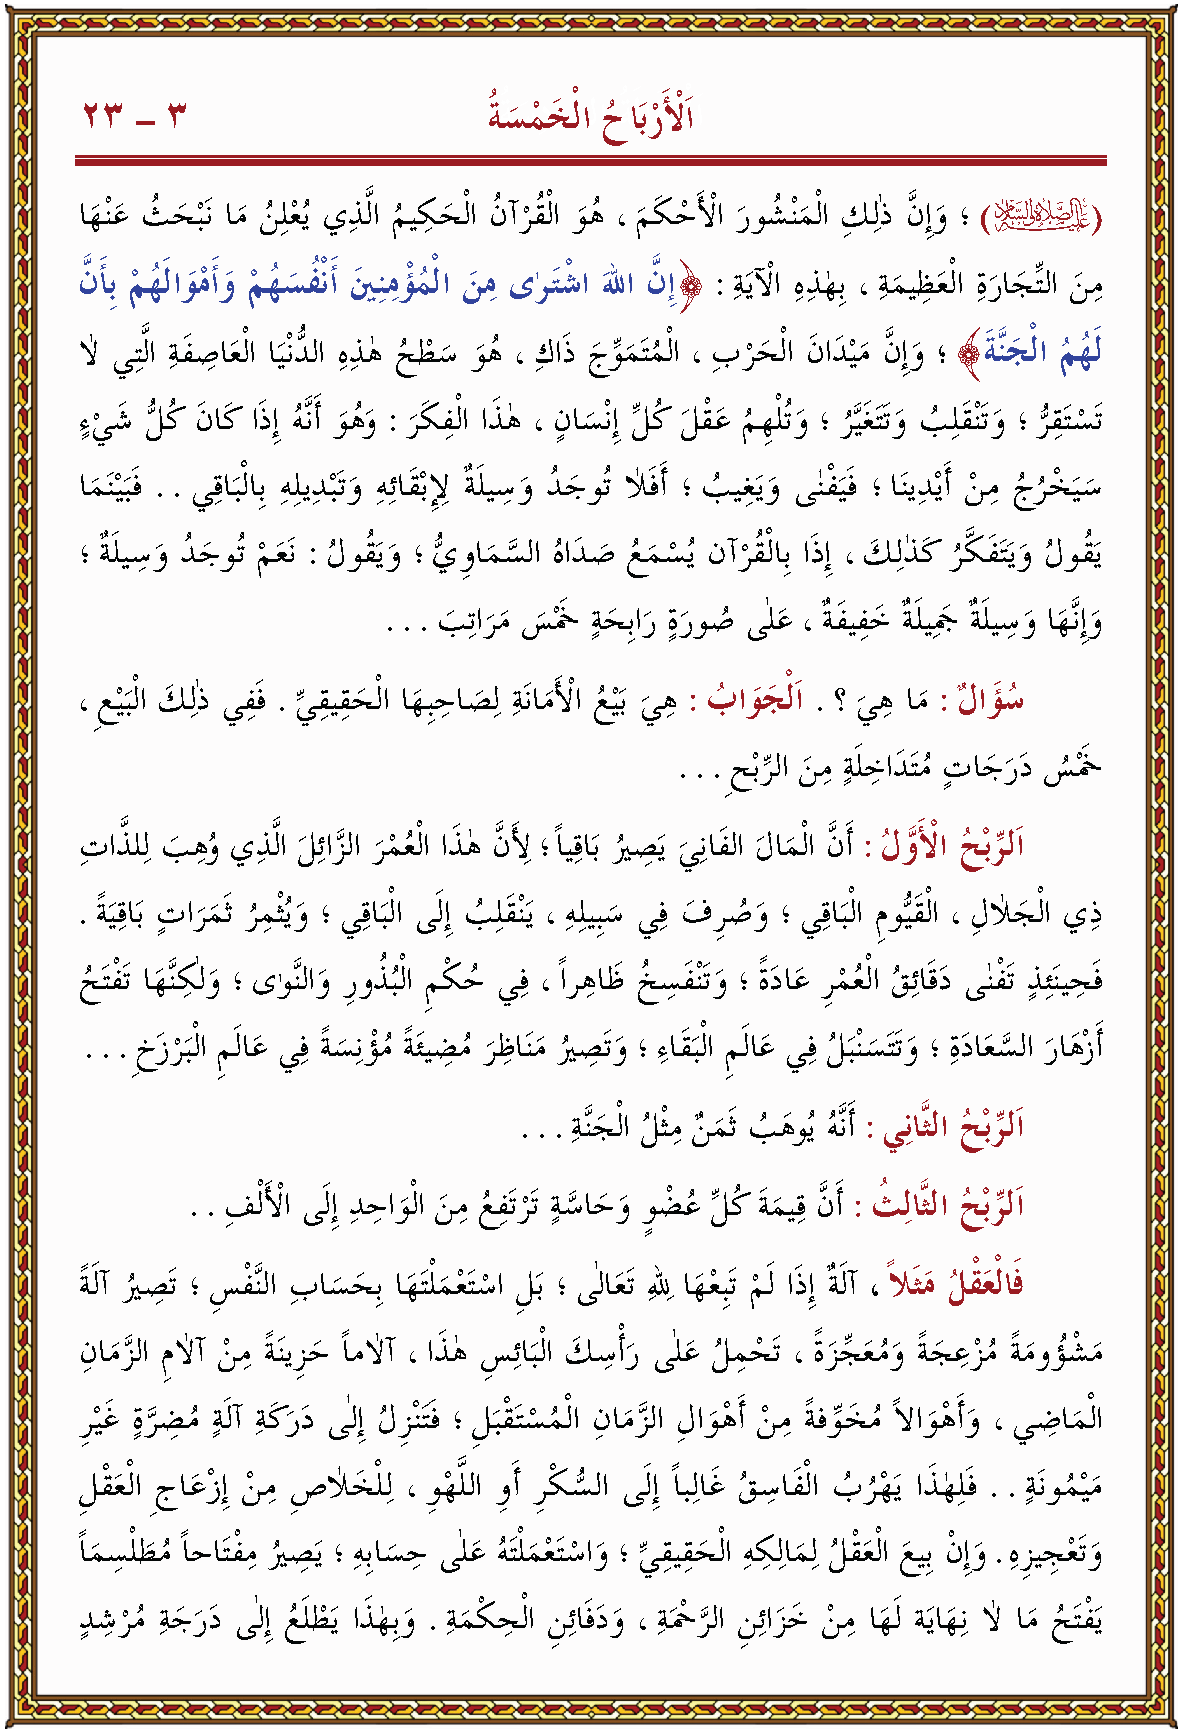 اَلْأَرْبَاحُ الْخَمْسَةُ ٣ – ٢٣
(عَلَيْهِ الصَّلَاةُ وَالسَّلَامُ) ؛ وَإِنَّ ذٰلِكَ الْمَنْشُورَ الْأَحْكَمَ ، هُوَ الْقُرْآنُ الْحَكِيمُ الَّذِي يُعْلِنُ مَا نَبْحَثُ عَنْهَا
مِنَ التِّجَارَةِ الْعَظِيمَةِ ، بِهٰذِهِ الْآيَةِ : ﴿إِنَّ اللّٰهَ اشْتَرٰى مِنَ الْمُؤْمِنِينَ أَنْفُسَهُمْ وَأَمْوَالَهُمْ بِأَنَّ
لَهُمُ الْجَنَّةَ﴾ ؛ وَإِنَّ مَيْدَانَ الْحَرْبِ ، الْمُتَمَوِّجَ ذَاكَ ، هُوَ سَطْحُ هٰذِهِ الدُّنْيَا الْعَاصِفَةِ الَّتِي لَا
تَسْتَقِرُّ ؛ وَتَنْقَلِبُ وَتَتَغَيَّرُ ؛ وَتُلْهِمُ عَقْلَ كُلِّ إِنْسَانٍ ، هٰذَا الْفِكْرَ : وَهُوَ أَنَّهُ إِذَا كَانَ كُلُّ شَيْءٍ
سَيَخْرُجُ مِنْ أَيْدِينَا ؛ فَيَفْنٰى وَيَغِيبُ ؛ أَفَلَا تُوجَدُ وَسِيلَةٌ لِإِبْقَائِهِ وَتَبْدِيلِهِ بِالْبَاقِي . . فَبَيْنَمَا
يَقُولُ وَيَتَفَكَّرُ كَذٰلِكَ ، إِذَا بِالْقُرْآنِ يُسْمَعُ صَدَاهُ السَّمَاوِيُّ ؛ وَيَقُولُ : نَعَمْ تُوجَدُ وَسِيلَةٌ ؛
وَإِنَّهَا وَسِيلَةٌ جَمِيلَةٌ خَفِيفَةٌ ، عَلٰى صُورَةٍ رَابِحَةٍ خَمْسَ مَرَاتِبَ . . .
سُؤَالٌ : مَا هِيَ ؟ . اَلْجَوَابُ : هِيَ بَيْعُ الْأَمَانَةِ لِصَاحِبِهَا الْحَقِيقِيِّ . فَفِي ذٰلِكَ الْبَيْعِ ،
خَمْسُ دَرَجَاتٍ مُتَدَاخِلَةٍ مِنَ الرِّبْحِ . . .
اَلرِّبْحُ الْأَوَّلُ : أَنَّ الْمَالَ الفَانِيَ يَصِيرُ بَاقِياً ؛ لِأَنَّ هٰذَا الْعُمْرَ الزَّائِلَ الَّذِي وُهِبَ لِلذَّاتِ
ذِي الْجَلَالِ ، الْقَيُّومِ الْبَاقِي ؛ وَصُرِفَ فِي سَبِيلِهِ ، يَنْقَلِبُ إِلَى الْبَاقِي ؛ وَيُثْمِرُ ثَمَرَاتٍ بَاقِيَةً .
فَحِينَئِذٍ تَفْنٰى دَقَائِقُ الْعُمْرِ عَادَةً ؛ وَتَنْفَسِخُ ظَاهِراً ، فِي حُكْمِ الْبُذُورِ وَالنَّوٰى ؛ وَلٰكِنَّهَا تَفْتَحُ
أَزْهَارَ السَّعَادَةِ ؛ وَتَتَسَنْبَلُ فِي عَالَمِ الْبَقَاءِ ؛ وَتَصِيرُ مَنَاظِرَ مُضِيئَةً مُؤْنِسَةً فِي عَالَمِ الْبَرْزَخِ . . .
اَلرِّبْحُ الثَّانِي : أَنَّهُ يُوهَبُ ثَمَنٌ مِثْلُ الْجَنَّةِ . . .
اَلرِّبْحُ الثَّالِثُ : أَنَّ قِيمَةَ كُلِّ عُضْوٍ وَحَاسَّةٍ تَرْتَفِعُ مِنَ الْوَاحِدِ إِلَى الْأَلْفِ . .
فَالْعَقْلُ مَثَلاً ، آلَةٌ إِذَا لَمْ تَبِعْهَا لِلّٰهِ تَعَالٰى ؛ بَلِ اسْتَعْمَلْتَهَا بِحَسَابِ النَّفْسِ ؛ تَصِيرُ آلَةً
مَشْؤُومَةً مُزْعِجَةً وَمُعَجِّزَةً ، تَحْمِلُ عَلٰى رَأْسِكَ الْبَائِسِ هٰذَا ، آلَاماً حَزِينَةً مِنْ آلَامِ الزَّمَانِ
الْمَاضِي ، وَأَهْوَالاً مُخَوِّفَةً مِنْ أَهْوَالِ الزَّمَانِ الْمُسْتَقْبَلِ ؛ فَتَنْزِلُ إِلٰى دَرَكَةِ آلَةٍ مُضِرَّةٍ غَيْرِ
مَيْمُونَةٍ . . فَلِهٰذَا يَهْرُبُ الْفَاسِقُ غَالِباً إِلَى السُّكْرِ أَوِ اللَّهْوِ ، لِلْخَلَاصِ مِنْ إِزْعَاجِ الْعَقْلِ
وَتَعْجِيزِهِ . وَإِنْ بِيعَ الْعَقْلُ لِمَالِكِهِ الْحَقِيقِيِّ ؛ وَاسْتَعْمَلْتَهُ عَلٰى حِسَابِهِ ؛ يَصِيرُ مِفْتَاحاً مُطَلْسِماً
يَفْتَحُ مَا لَا نِهَايَةَ لَهَا مِنْ خَزَائِنِ الرَّحْمَةِ ، وَدَفَائِنِ الْحِكْمَةِ . وَبِهٰذَا يَطْلَعُ إِلٰى دَرَجَةِ مُرْشِدٍ